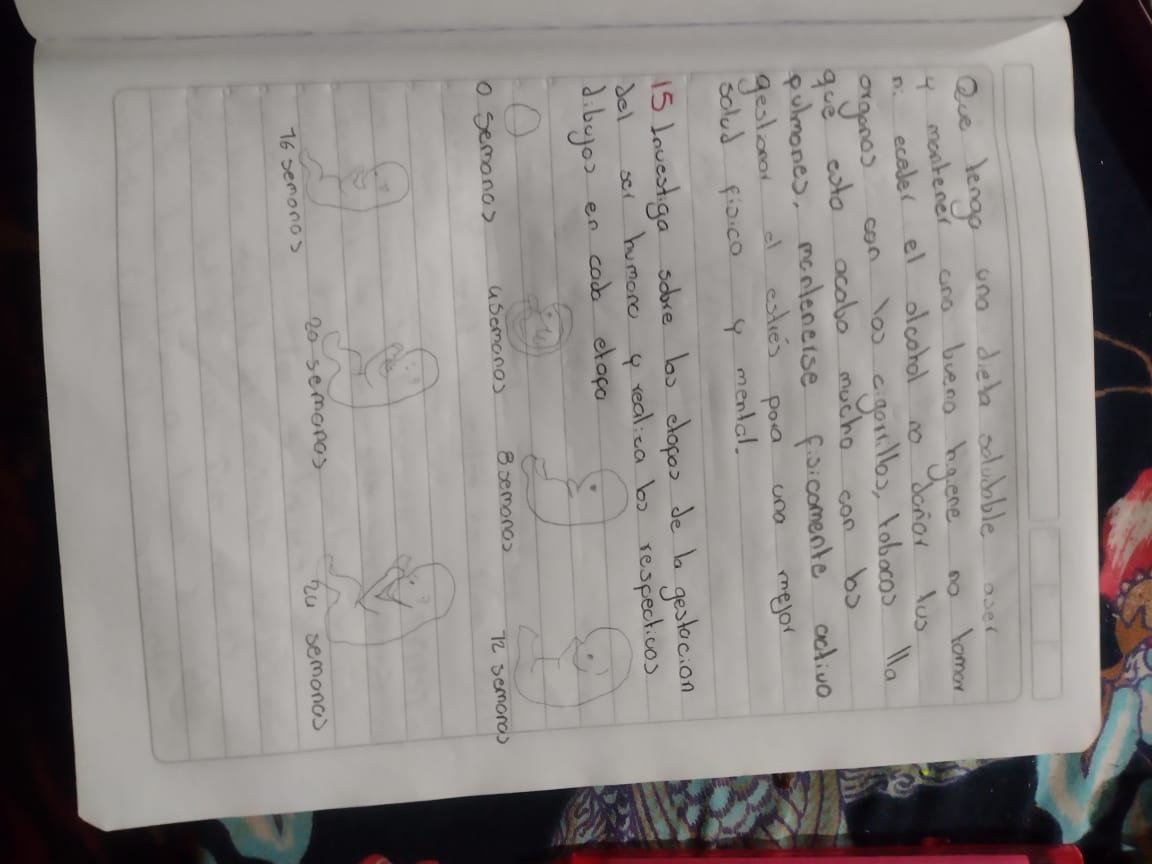 Que tenga una dieta saludable aser
y mantener una buena higiene no tomar
ni eceder el alcohol no dañar tus
organos con los cigarrillos, tabacos lla
que esto acaba mucho con los
pulmones, mantenerse fisicamente activo
gestionar el estrés para una mejor
salud fisica y mental.
15 Investiga sobre las etapas de la gestacion
del ser humano y realiza los respectivos
dibujos en cada etapa
0 semanas 4 semanas 8 semanas 12 semanas
16 semanas 20 semanas 24 semanas